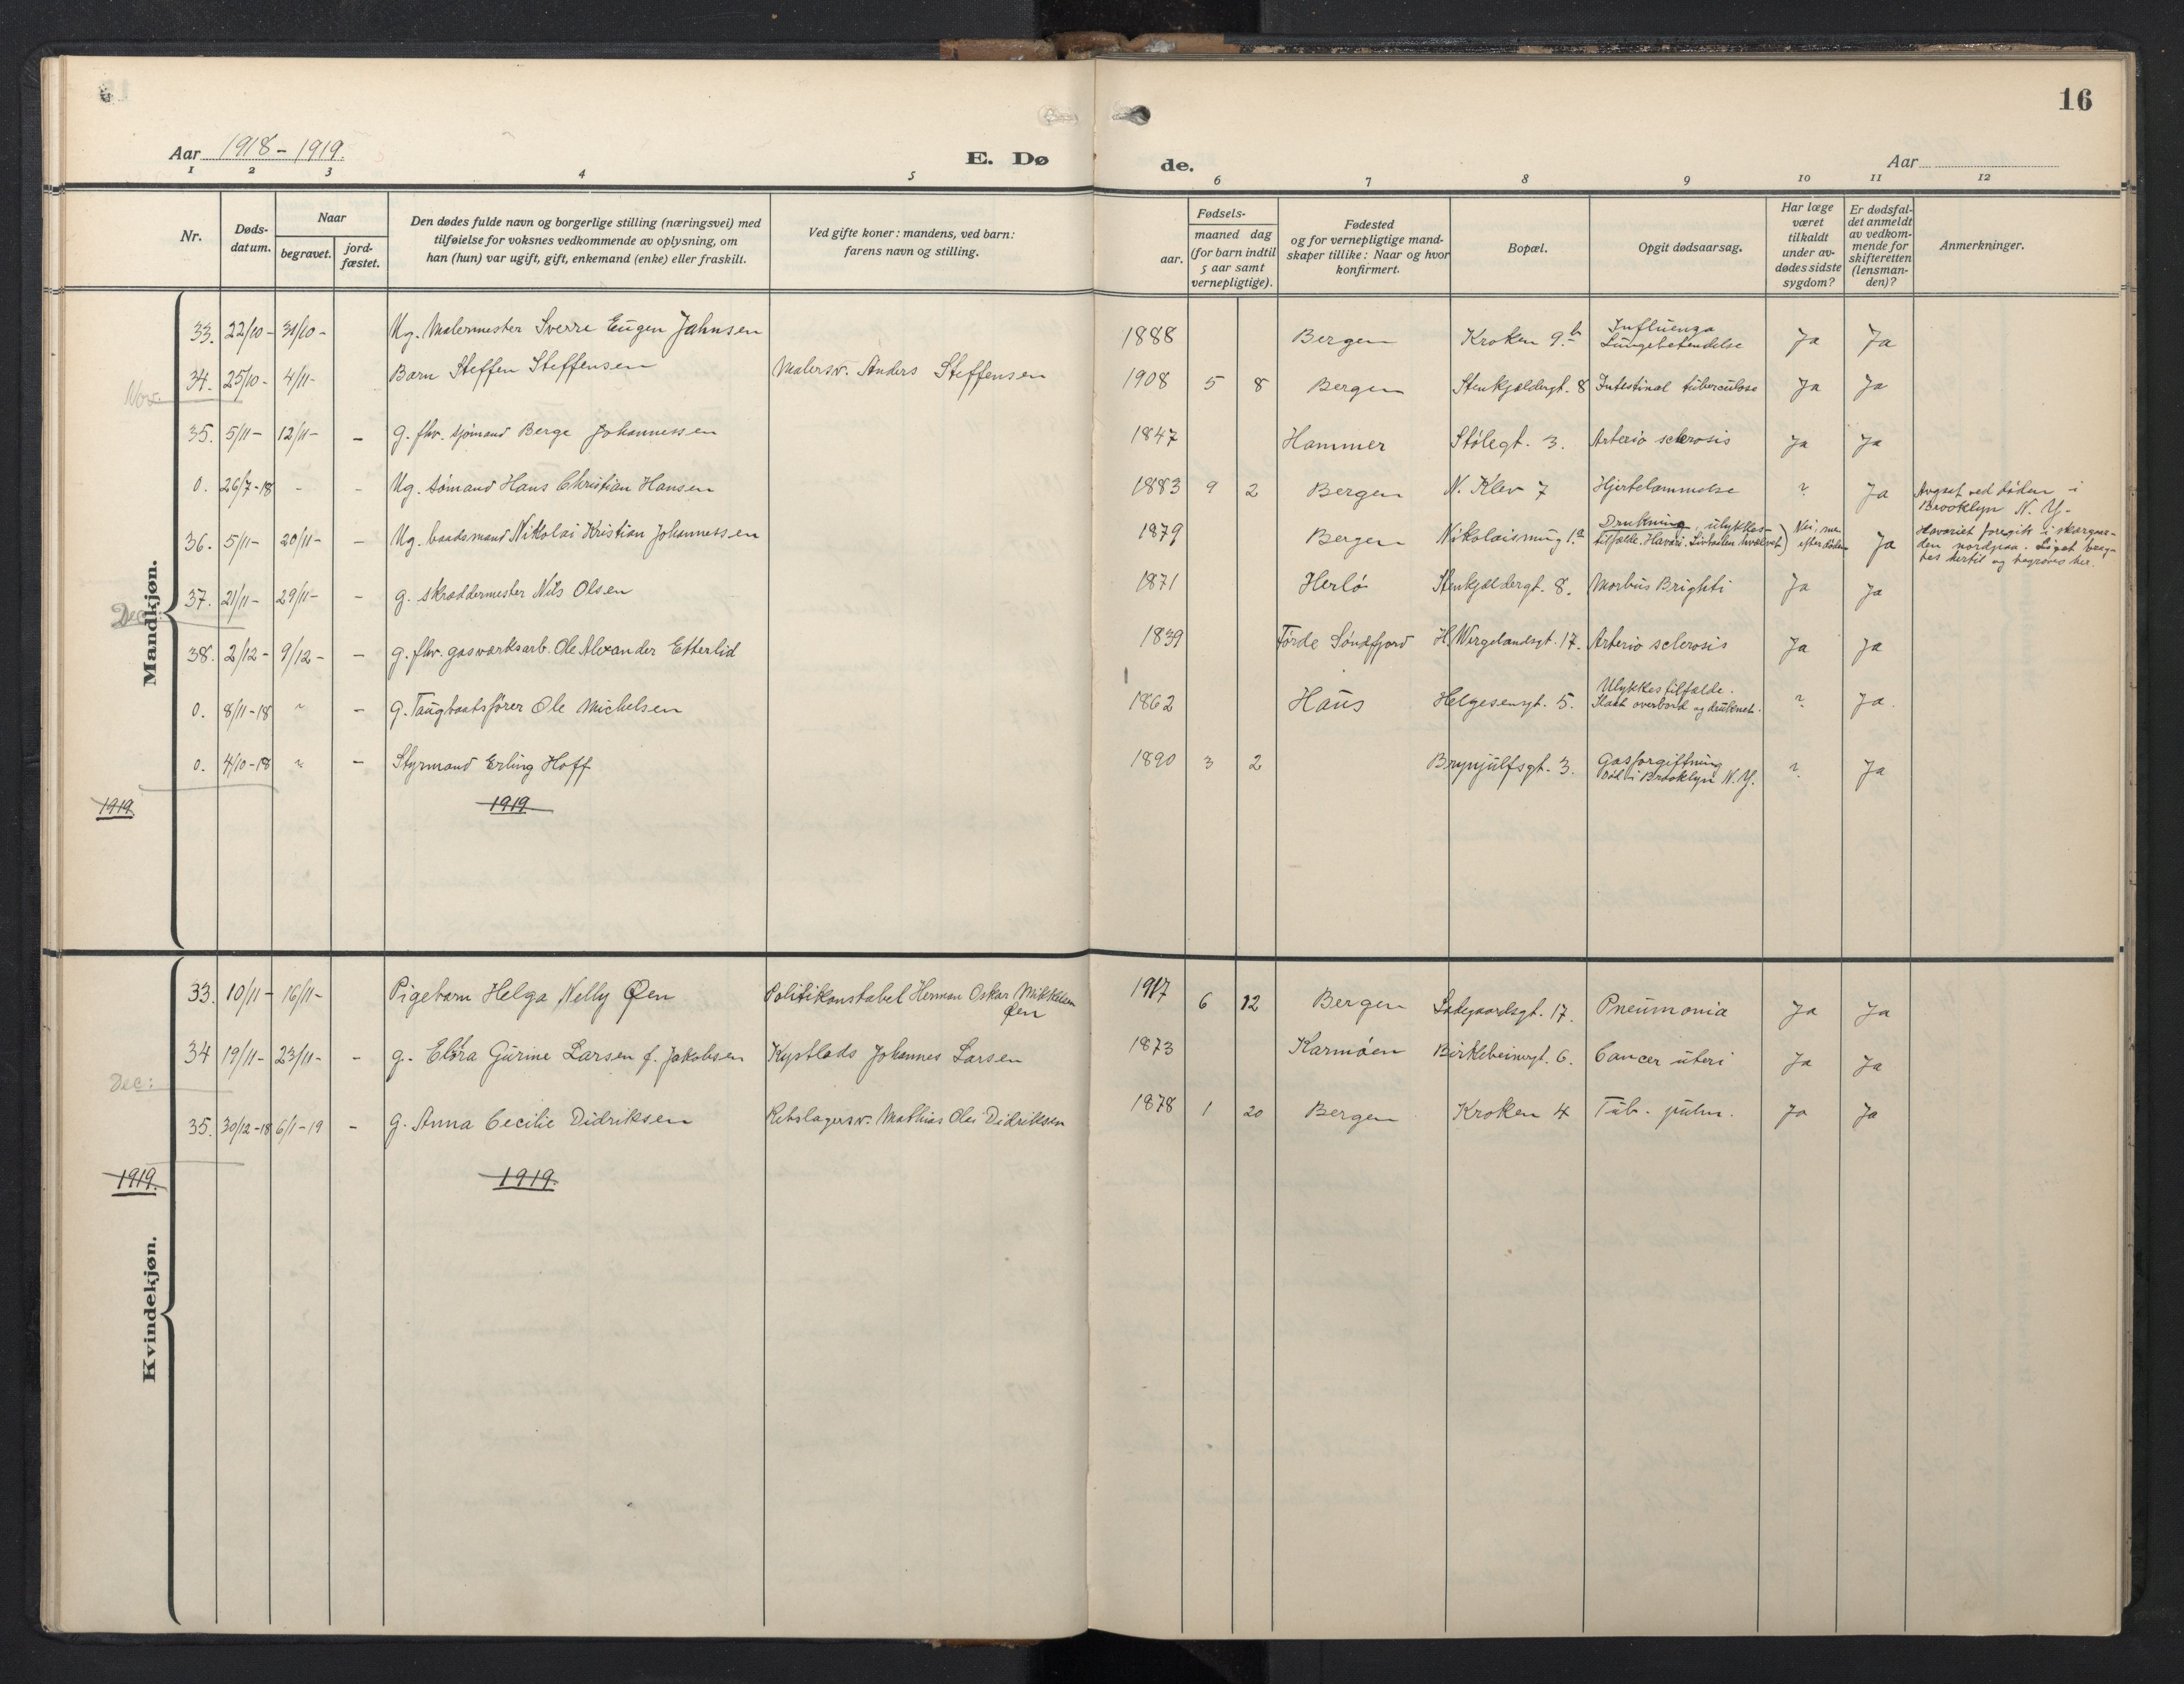 16
Aar 1918-1919.
E. Dø de.
Aar
1 2 3 4 5 6 7 8 9 10 11 12
Nr.
Døds-datum.
Naar
begravet.
jord-fæstet.
Den dødes fulde navn og borgerlige stilling (næringsvei) med
tilføielse for voksnes vedkommende av oplysning, om
han (hun) var ugift, gift, enkemand (enke) eller fraskilt.
Ved gifte koner: mandens, ved barn:
farens navn og stilling.
Fødsels-
aar.
maaned dag
(for barn indtil
5 aar samt
vernepligtige).
Fødested
og for vernepligtige mand-
skaper tillike: Naar og hvor
konfirmert.
Bopæl.
Opgit dødsaarsag.
Har læge
været
tilkaldt
under av-
dødes sidste
sygdom?
Er dødsfal-
det anmeldt
av vedkom-
mende for
skifteretten
(lensman-
den)?
Anmerkninger.
Mandkjøn.
33. 22/10- 31/10- Ug. Malermester Sverre Eugen Jahnsen 1888 Bergen Kroken 9b Influenza Lungebetendelse Ja Ja
34. 25/10- 4/11- Barn Steffen Steffensen Malersv. Anders Steffensen 1908 5 8 Bergen Stenkjeldergt. 8 Intestinal tuberculose Ja Ja
Nov.
35. 5/11- 12/11- - g. fhv. sjömand Berge Johannessen 1847 Hammer Stölegt. 3. Arterio sclerosis Ja Ja
0. 26/7-18 - - Ug. sömand Hans Christian Hansen 1883 9 2 Bergen N. Klev 7 Hjertelammelse ? Ja Avgaat ved döden i
Brooklyn N. Y.-
36. 5/11- 20/11- - Ug. baadsmand Nikolai Kristian Johannessen 1879 Bergen Nikolaismug 1.a Drukning, ulykkes-
tilfælde. Havari. Livbaaten hvælvet) Nei, men efter döden Ja Havariet foregik i skærgaar-
den nordpaa. Liget brag-
tes hertil og begroves her.
37. 21/11- 29/11- - g. skræddermester Nils Olsen 1871 Herlö Stenkjeldergt. 8. Morbus Brighti Ja Ja
Dec.
38. 2/12- 9/12- - g. fhv. gasværksarb. Ole Alexander Etterlid 1839 Förde Söndfjord H. Wergelandsgt. 17. Arterio sclerosis Ja Ja
0. 8/11-18 ~ - g. Taugbaatsförer Ole Michelsen 1862 Haus Helgesensgt. 5. Ulykkestilfælde.
Slaat overbord og druknet. ? Ja.
0. 4/10-18 ~ - Styrmand Erling Hoff 1890 3 2 Brynjulfsgt. 3. Gasforgiftning
Död i Brooklyn N. Y. ? Ja
1919 1919
Kvindekjøn.
33. 10/11- 16/11- Pigebarn Helga Nelly Øen Politikonstabel Herman Oskar Mikkelsen
Øen 1917 6 12 Bergen Ladegaardsgt. 17. Pneumonia Ja Ja
34 19/11- 23/11- - g. Elöra Gurine Larsen f. Jakobsen Kystlods Johannes Larsen 1873 Karmöen Birkebeinergt. 6. Cancer uteri Ja Ja
Dec:
35. 30/12-18 6/1-19 - g. Anna Cecilie Didriksen Rebslagersv. Mathias Olai Didriksen 1878 1 20 Bergen Kroken 4 Tub. pulm. Ja Ja
1919. 1919.